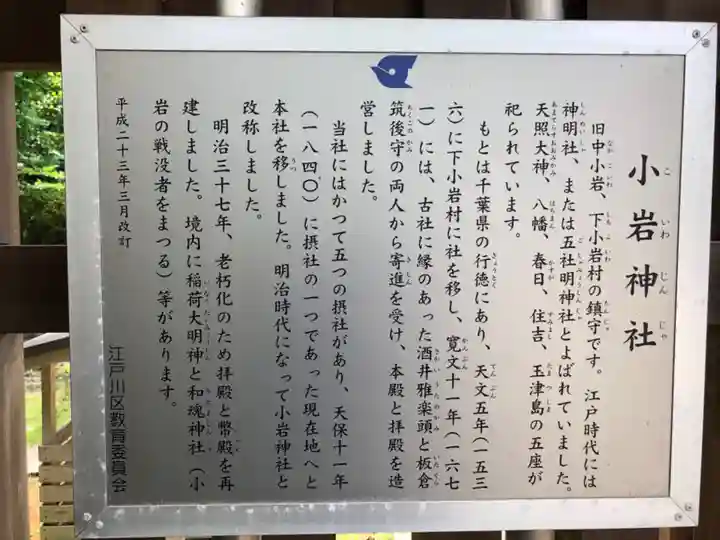 小岩神社
旧中小岩、下小岩村の鎮守です。江戸時代には
神明社、または五社明神社とよばれていました。
天照大神、八幡、春日、住吉、玉津島の五座が
祀られています。
もとは千葉県の行徳にあり、天文五年(一五三
六)に下小岩村に社を移し、寛文十一年(一六七
一)には、古社に縁のあった酒井雅楽頭と板倉
筑後守の両人から寄進を受け、本殿と拝殿を造
営しました。
当社にはかつて五つの摂社があり、天保十一年
(一八四〇)に摂社の一つであった現在地へと
本社を移しました。明治時代になって小岩神社と
改称しました。
明治三十七年、老朽化のため拝殿と幣殿を再
建しました。境内に稲荷大明神と和魂神社(小
岩の戦没者をまつる)等があります。
平成二十三年三月改訂
江戸川区教育委員会